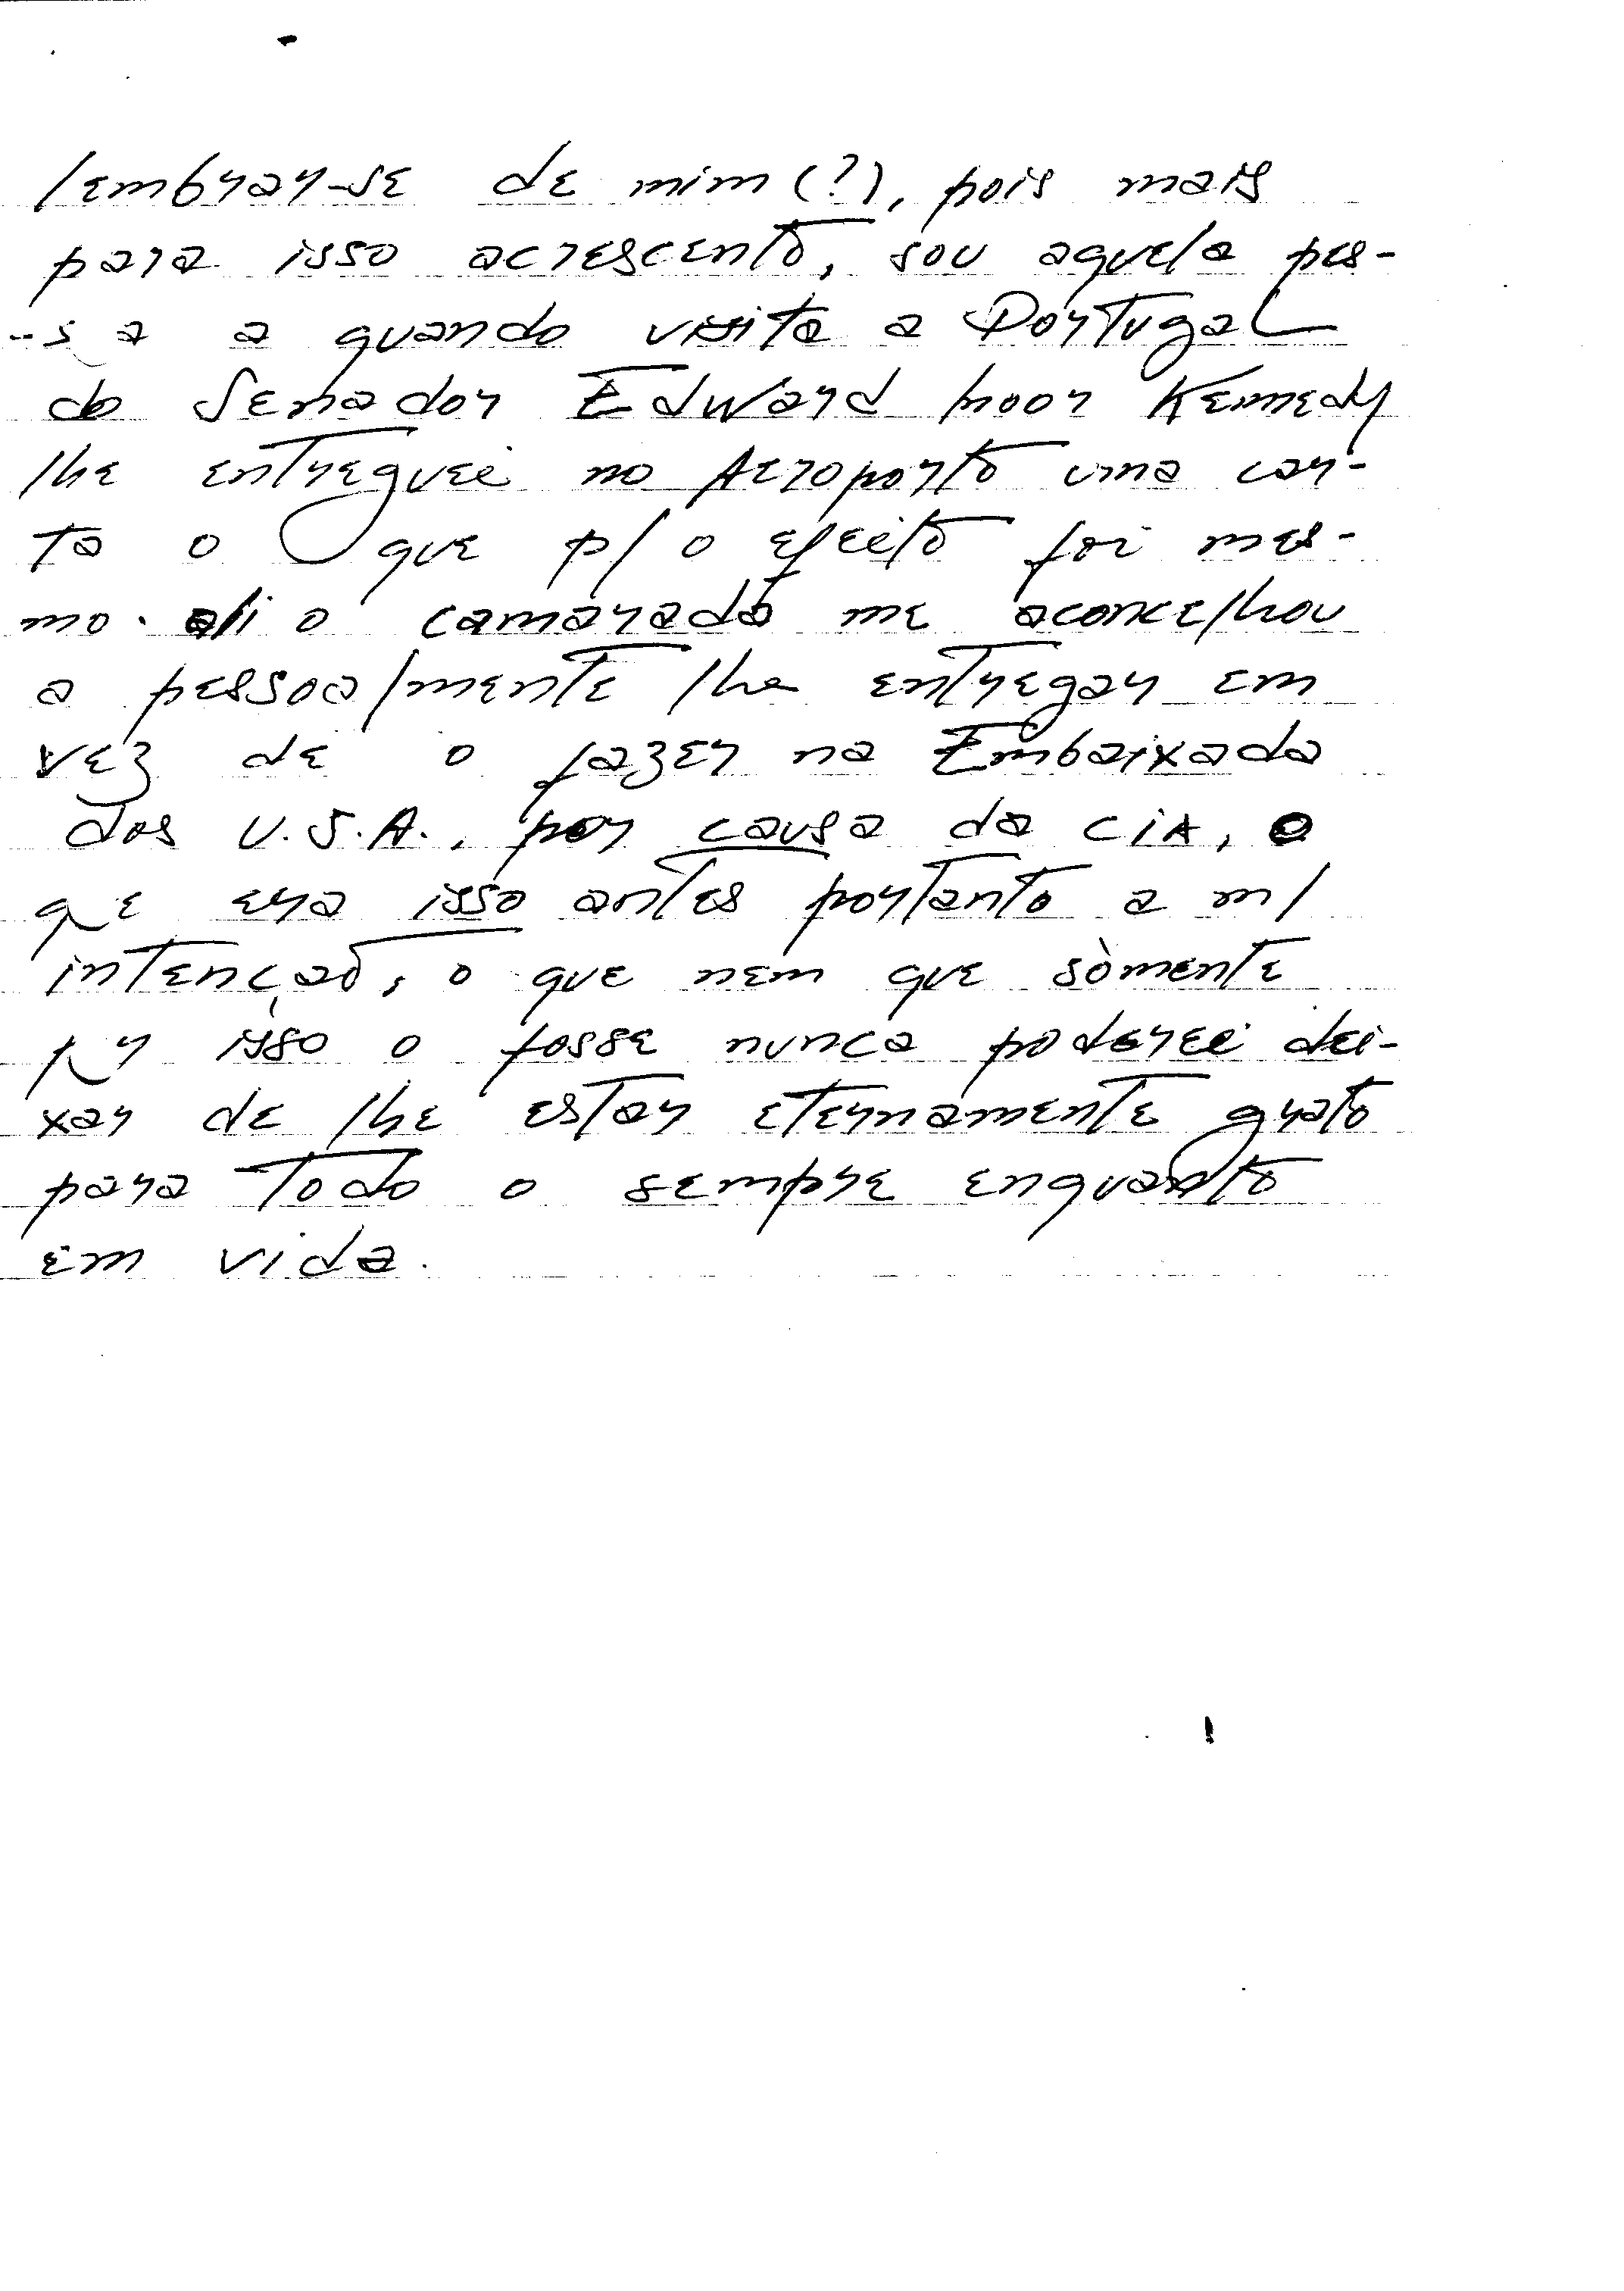 lembrar-se de mim (?), pois mais
para isso acrescento, sou aquela pes-
-s a a quando visita a Portugal
do Senador Edward moor Kennedy
lhe entreguei no Aeroporto uma car-
ta o que p/ o efeito foi mes-
mo. ali o camarada me aconcelhou
a pessoalmente lhe entregar em
vez de o fazer na Embaixada
dos U.S.A., por causa da CIA, o
que era isso antes portanto a m/
intenção, o que nem que sòmente
p r isso o fosse nunca poderei dei-
xar de lhe estar eternamente grato
para todo o sempre enquanto
em vida.